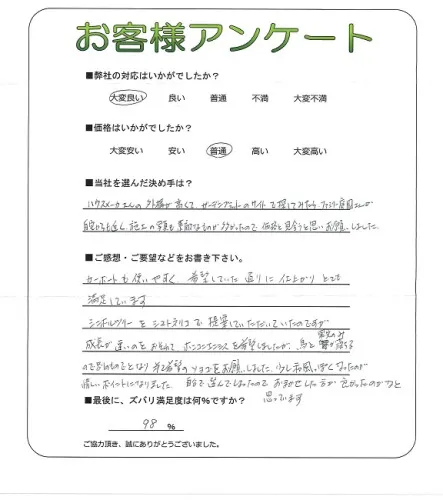 お客様アンケート
■弊社の対応はいかがでしたか?
大変良い 良い 普通 不満 大変不満
■価格はいかがでしたか?
大変安い 安い 普通 高い 大変高い
■当社を選んだ決め手は?
ハウスメーカーさんの外構が高くて、ガーデンプラットのサイトで探してみたら、ファミリー庭園さんが
自宅からも近く、施工の写真も素敵なものが多かったので価格も見合うと思いお願いしました。
■ご感想・ご要望などをお書き下さい。
カーポートも使いやすく、希望していた通りに仕上がりとても
満足しています
シンボルツリーをシマトネリコで提案していただいていたのですが
成長が速いのをおそれて、ホンコンエンシスを希望しましたが、鳥と
とのことなり 第2希望のソヨゴをお願いしました。少し和風っぽくなったが
悔しいポイントになりました。自分で選んでしまったのでおまかせした方が良かったのかなと
思っています
■最後に、ズバリ満足度は何%ですか?
98 %
ご協力頂き、誠にありがとうございました。